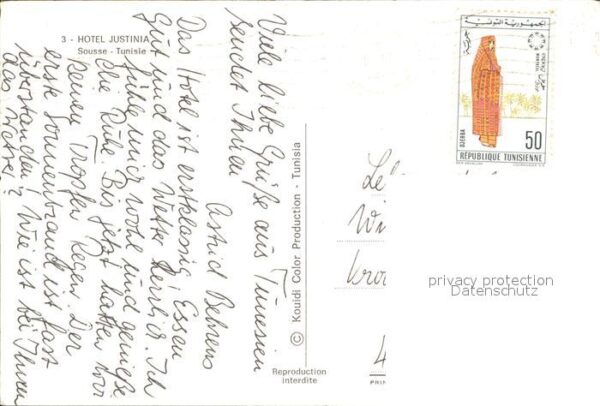 3 - HOTEL JUSTINIA
Sousse - Tunisie
Viele liebe Grüße aus Tunesien
sendet Ihnen
Astrid Behrens
Das Hotel ist erstklassig, Essen
gut und das Wetter herrlich. Ich
fühle mich wohl und genieße
die Ruhe. Bis jetzt hatten wir
keinen Tropfen Regen. Der
erste Sonnenbrand ist fast
überstanden. Wie ist bei Ihnen
das Wetter?
© Kouidi Color Production - Tunisia
Reproduction
interdite
الجمهورية التونسية
DJERBA
50
REPUBLIQUE TUNISIENNE
privacy protection
Datenschutz
4
PRIN